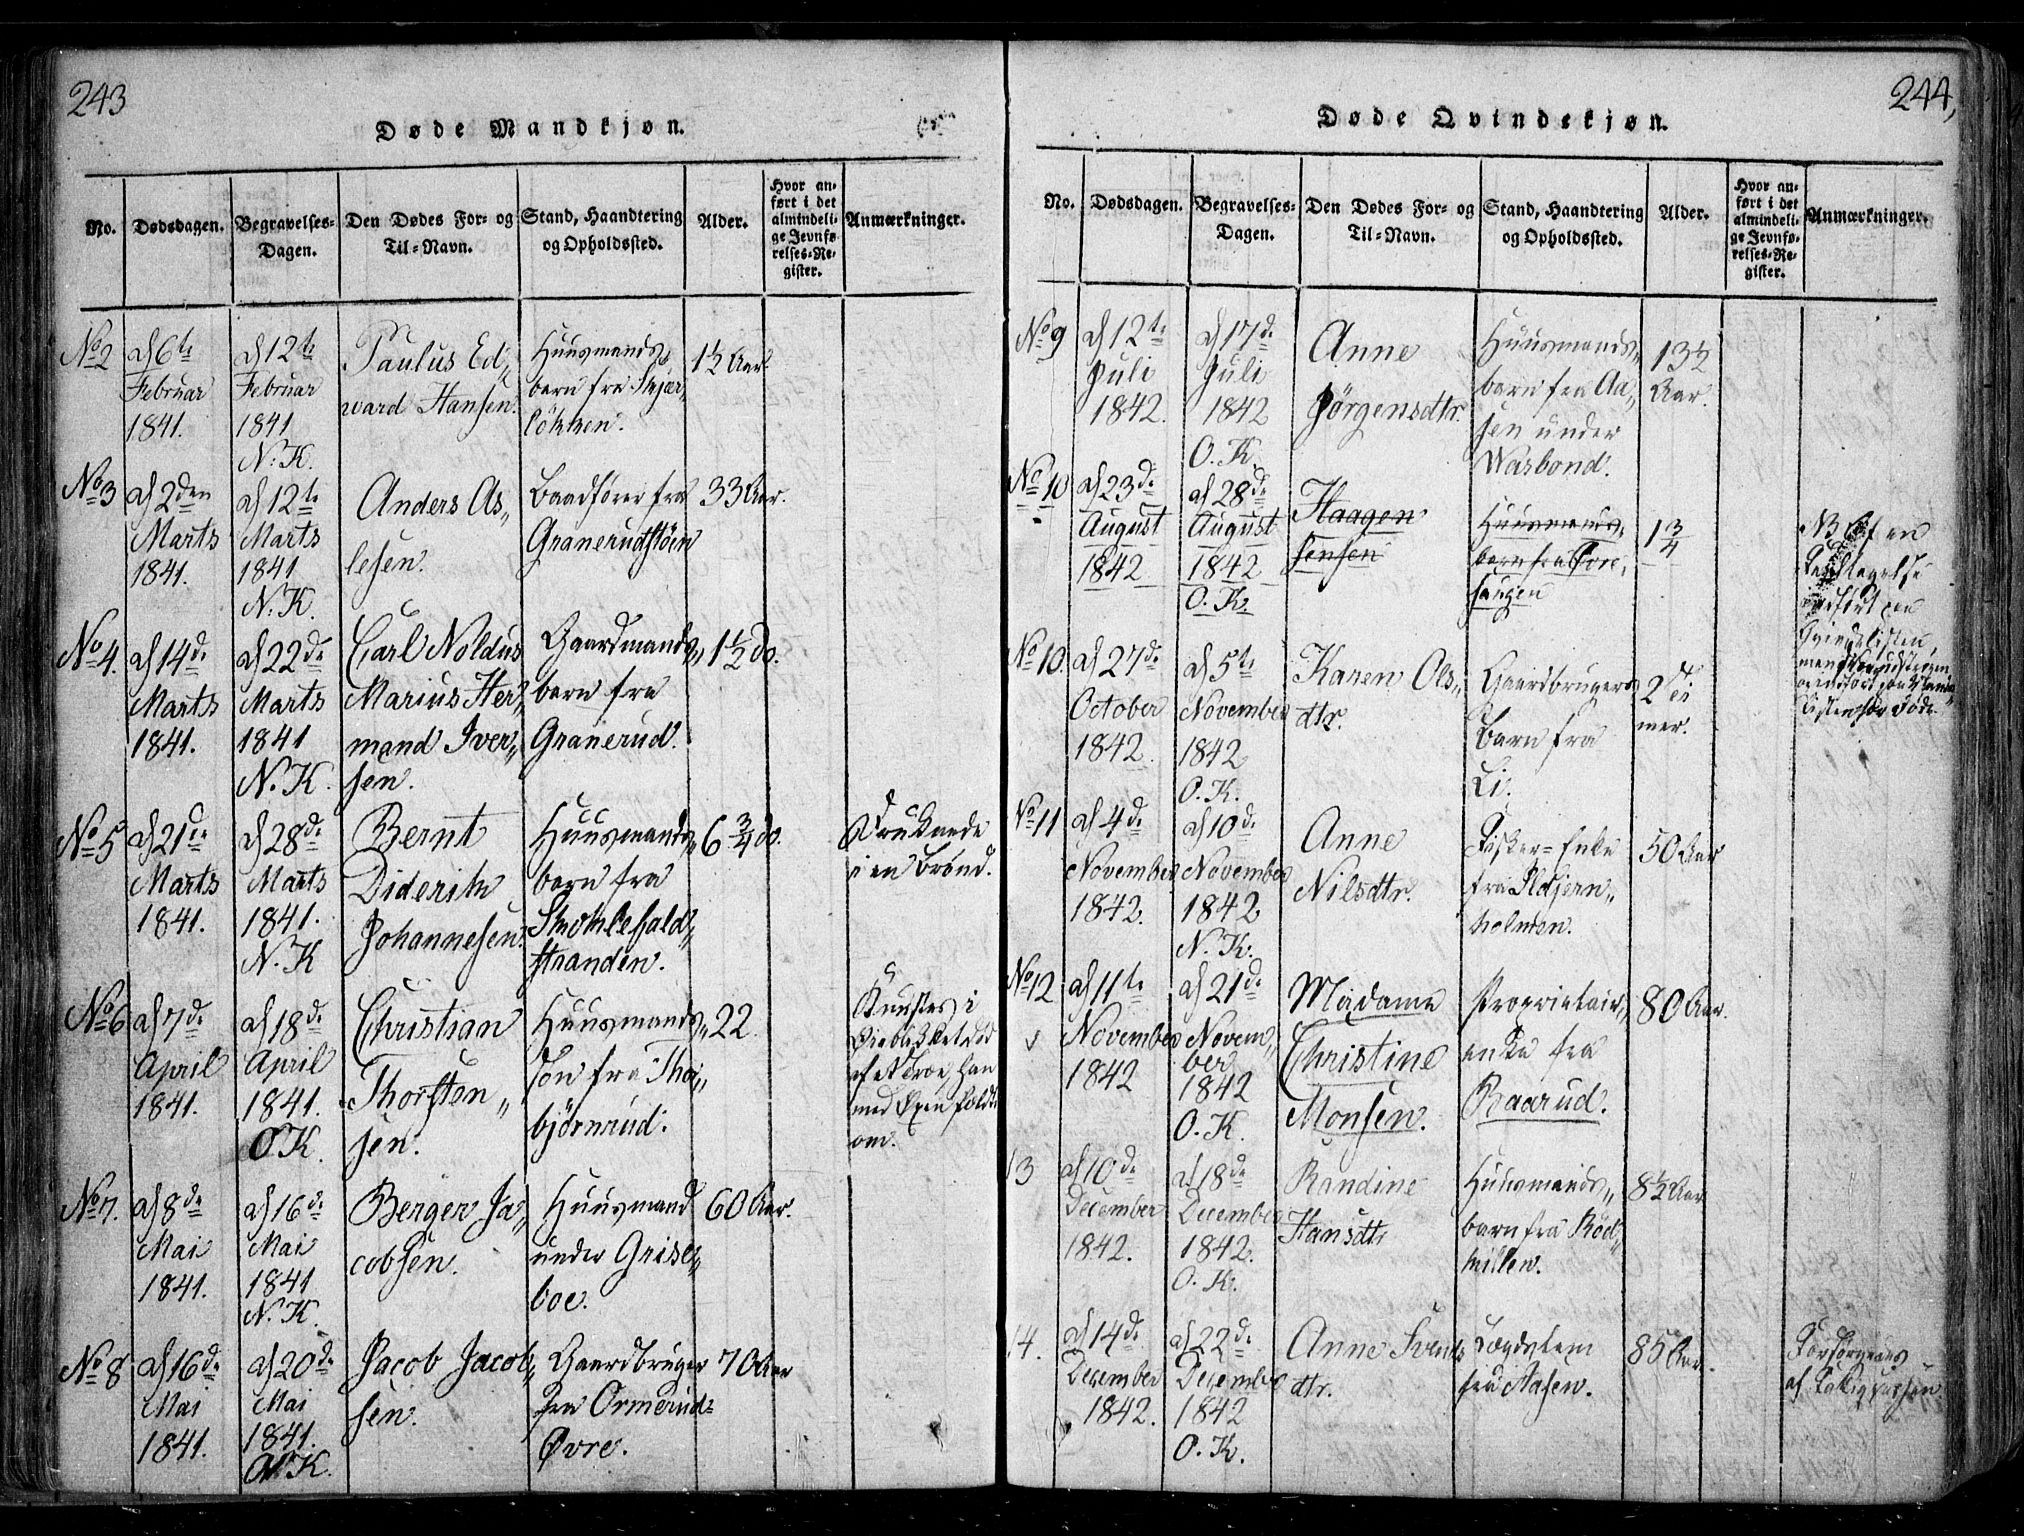 243
Døde Mandkjøn.
No.
Dødsdagen.
Begravelses-
Dagen.
Den Dødes For- og
Til-Navn.
Stand, Haandtering
og Opholdssted.
Alder.
Hvor an-
ført i det
almindeli-
ge Jevnfø-
relses-Re-
gister.
Anmærkninger.
No 2
d 6te
Februar
1841.
d 12te
Februar
1841
N. K.
Paulus Ed„
ward Hansen.
Huusmands„
barn fra Skjær„
løkken.
1½ Aar.
No 3
d 2den
Marts
1841.
d 12te
Marts
1841
N. K.
Anders As„
lesen.
Baadfører fra
Granerudstøen
33 Aar.
No 4.
d 14de
Marts
1841.
d 22de
Marts
1841
N. K.
Carl Noldus
Marius Her„
mand Iver„
sen.
Gaardmands„
barn fra
Granerud.
1½ do.
No 5
d 21de
Marts
1841.
d 28de
Marts
1841.
N. K
Bernt
Diderich
Johannesen.
Huusmands„
barn fra
stranden.
6 3/4 do.
Druknede
i en Brønd.
No 6
d 7de
April
1841.
d 18de
April
1841.
O K.
Christian
Thorsten„
sen.
Huusmands„
søn fra Thor„
bjørnrud.
22.
Knustes i
Øieblikket død
af et Træ, han
med Øxen fældte
om.
No 7.
d 8de
Mai
1841.
d 16de
Mai
1841
N. K.
Berger Ja„
cobsen.
Huusmand
under Grise„
boe.
60 Aar.
No 8
d 16de
Mai
1841.
d 20de
Mai
1841.
K.
Jacob Jacob„
sen.
Gaardbruger
fra Ormerud=
Øvre.
70 Aar
244,
Døde Qvindekjøn.
No.
Dødsdagen.
Begravelses-
Dagen.
Den Dødes For- og
Til-Navn.
Stand, Haandtering
og Opholdssted.
Alder.
Hvor an-
ført i det
almindeli-
ge Jevnfø-
relses-Re-
gister.
Anmærkninger.
No 9
d 12te
Juli
1842.
d 17de
Juli
1842
O. K.
Anne
Jørgensdtr.
Huusmands„
barn fra Aa„
sen under
Warbond.
13½
Aar.
No 10
d 23de
August
1842
d 28de
August
1842
O. K.
Haagen
Jensen
Huusmands„
barn fra Øvre„
1 3/4
NB Af en
Feiltagelse
anført paa
Qvindelisten,
No 10.
d 27de
October
1842.
d 5te
November
1842
O. K.
Karen Ols„
dtr.
Gaardbrugers
Barn fra
Li.
2 Ti
mer.
No 11
d 4de
November
1842.
d 10de
November
1842
N. K.
Anne
Nilsdtr.
Fisker=Enke
fra Ildjern„
holmen.
50 Aar
No 12
d 11te
November
1842
d 21de
Novem„
ber
1842
O. K.
Madame
Christine
Monsen.
Proprietair„
enke fra
Raarud.
80 Aar.
13
d 10de
December
1842.
d 18de
December
1842.
O. K.
Randine
Hansdtr
Huusmands„
barn fra Rød„
hullen.
8½ Aar
14.
d 14de
December
1842.
d 22de
December
1842
O. K.
Anne Svends
dtr.
Lægdslem
fra Aasen.
85 Aar.
Forsørgedes
af Fattigvæsen